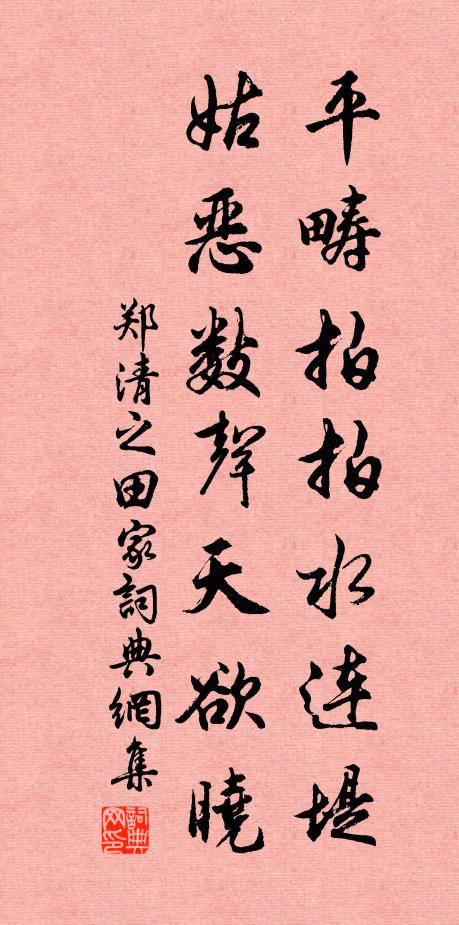 平畴拍拍水连堤
姑恶数聲天欲曉
郑清之田家詞典網集
詞典网印